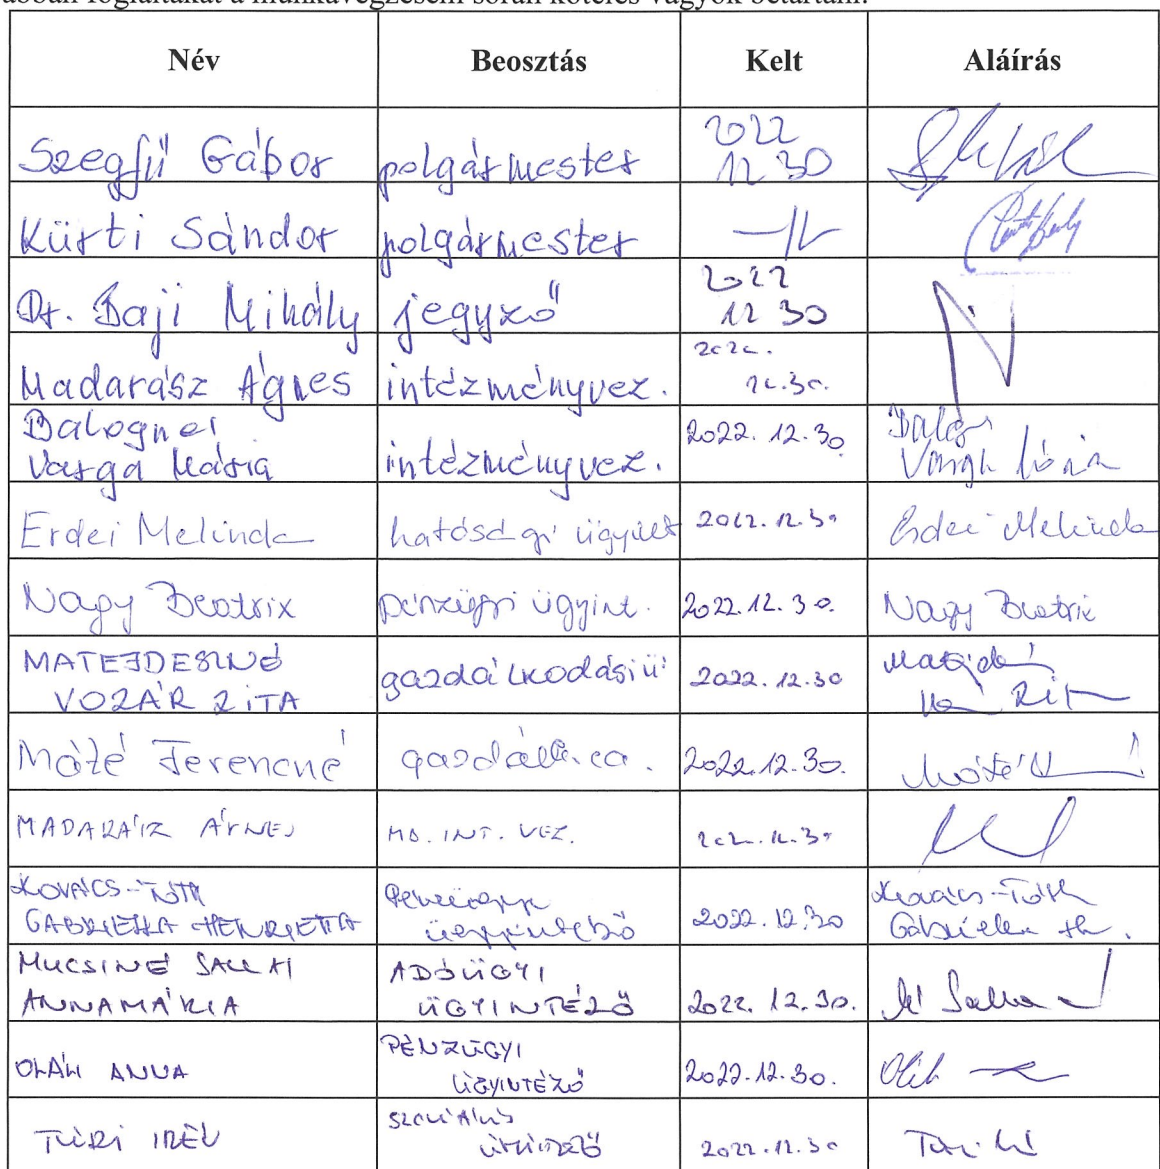 foglaltakat a munkavégzésem során köteles vagyok betartani.
Név Beosztás Kelt Aláírás
Szegfű Gábor polgármester 2022 12 30
Kürti Sándor polgármester -11-
Dr. Baji Mihály jegyző 2022 12 30
Madarász Ágnes intézményvez. 2022. 12.30.
Balogné
Varga Mária intézményvez. 2022. 12.30 Balogné Varga Mária
Erdei Melinda hatósági ügyint 2022. 12.30 Erdei Melinda
Nagy Beatrix pénzügyi ügyint. 2022.12.30. Nagy Beatrix
MATEJDESZNÉ
VOZÁR ZITA gazdálkodási ü 2022.12.30
Máté Ferencné 2022.12.30. Máté
MADARÁSZ ÁGNES INT. VEZ. 2022.12.30
KOVÁCS-TÓTH
GABRIELLA HENRIETTA pénzügyi ügyintéző 2022.12.30 Kovács-Tóth Gabriella H.
MUCSINÉ SALLAI
ANNAMÁRIA ADÓÜGYI ÜGYINTÉZŐ 2022. 12.30.
OLÁH ANNA PÉNZÜGYI ÜGYINTÉZŐ 2022.12.30. Oláh
TÚRI IRÉN SZOCIÁLIS ÜGYINTÉZŐ 2022.12.30